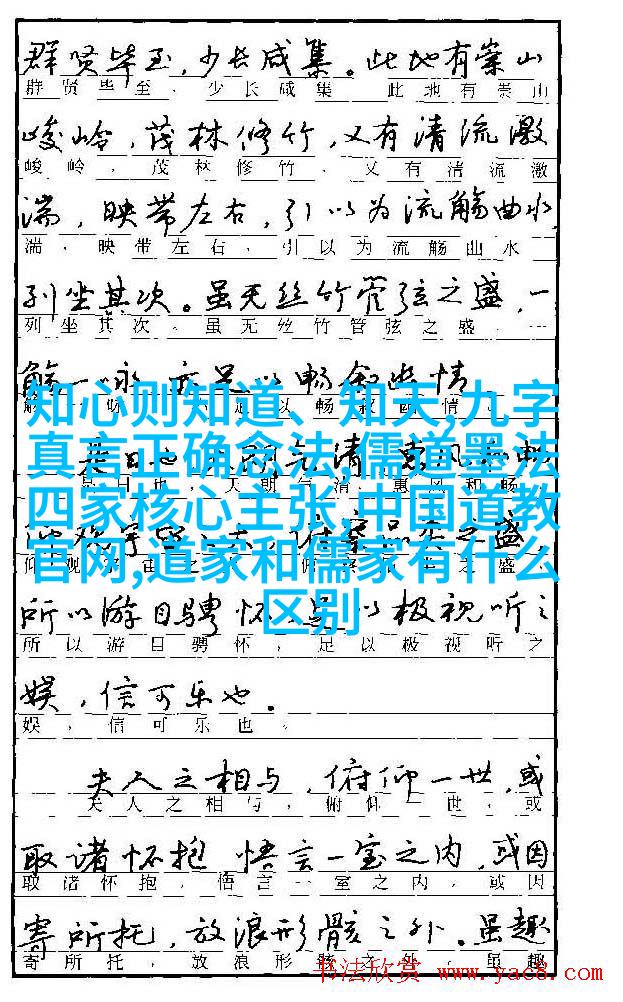 群贤毕至，少长咸集。此地有崇山
群贤毕至，少长咸集 此地有崇山
峻岭，茂林修竹，又有清流激
峻岭，茂林修竹，又有清流激
湍，映带左右，引以为流觞曲水，
湍，映带左右，引以为流觞曲水
列坐其次。虽无丝竹管弦之盛，一
列坐其次。虽无丝竹管弦之盛，一
觞一咏 亦足以畅叙幽情
知心则知道、知天,九字
真言正确念法,儒道墨法
四家核心主张,中国道教
官网,道家和儒家有什么
区别
所以游目骋怀 足以极视听之
所以游目骋怀，足以极视听之
娱，信可乐也。
娱，信可乐也。
夫人之相与，俯仰一世，或
夫人之相与，俯仰一世，或
取诸怀抱 悟言一室之内，或因
取诸怀抱，悟言一室之内，或因
寄所托，放浪形骸之外。虽趣
寄所托，放浪形骸之外。虽趣
书法欣赏 www.yac8.com